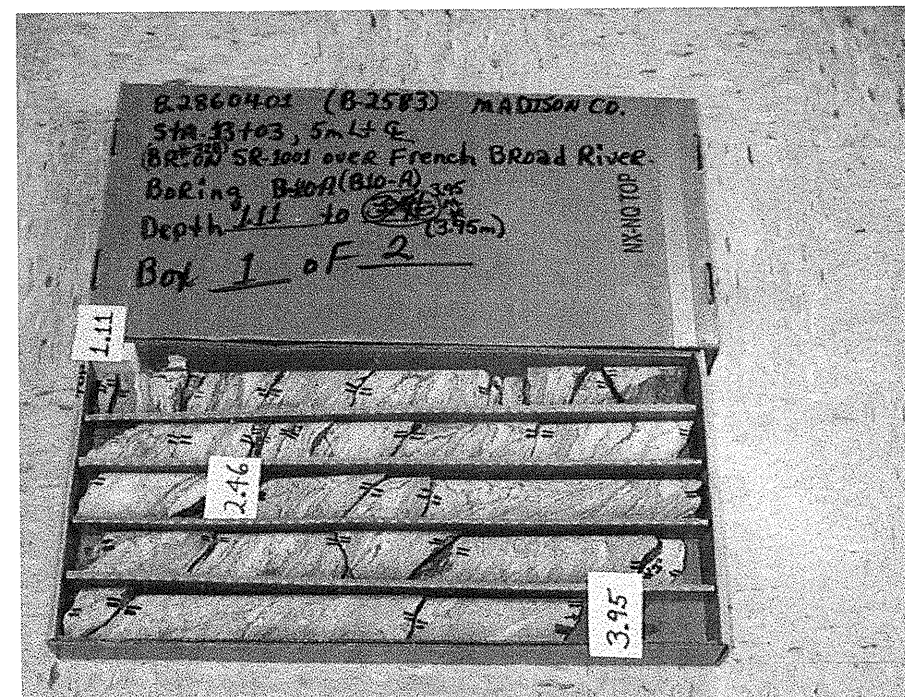 8.2860401 (B-2583) MADISON CO.
Sta. 13+03, 5m Lt ℄
(BR. ON SR-1001 over French BRoad River.
BoRing B-10A (B10-A)
Depth 1.11 to 3.95
(3.95m)
Box 1 of 2
NX-NQ TOP
1.11
2.46
3.95